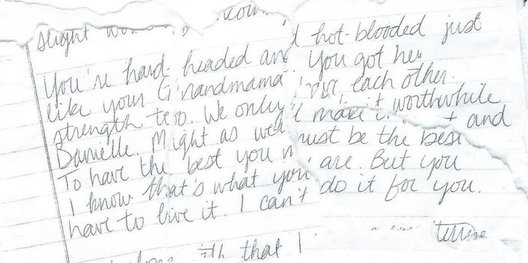 slight
You're hard-headed and hot-blooded just
like your Grandmama. You got her
strength too. We only each other.
Danielle. Might as well make it worthwhile and
To have the best you must be the best
I know that's what you are. But you
have to live it. I can't do it for you.
that I